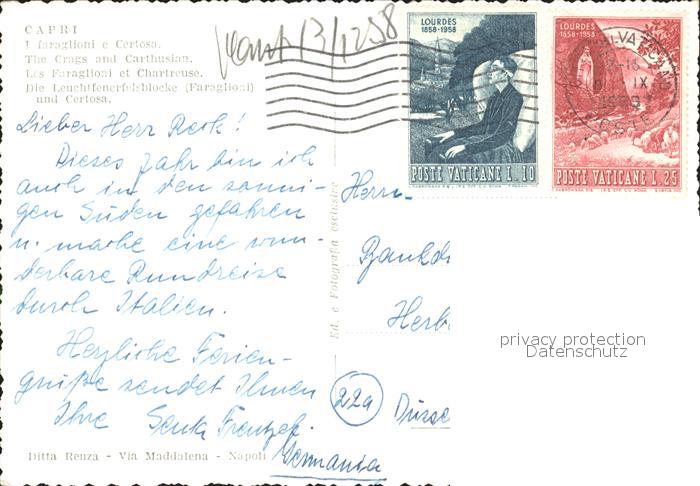 CAPRI
I faraglioni e Certosa.
The Crags and Carthusian.
Les Faraglioni et Chartreuse.
Die Leuchtfenerfelsblocke (Faraglioni)
und Certosa.
13/1258
LOURDES
1858-1958
POSTE VATICANE L.10
LOURDES
1858-1958
POSTE VATICANE L.25
Lieber Herr Reck!
Dieses Jahr bin ich
auch in den sonni-
gen Süden gefahren
u. mache eine wun-
derbare Rundreise
durch Italien.
Herzliche Ferien-
grüße sendet Ihnen
Ihre Senta Frentzel.
Ed. e Fotografia esclusive
Herrn
Bankdi
Herb
22a
Düsse
Germania
Ditta Renza - Via Maddalena - Napoli
privacy protection
Datenschutz